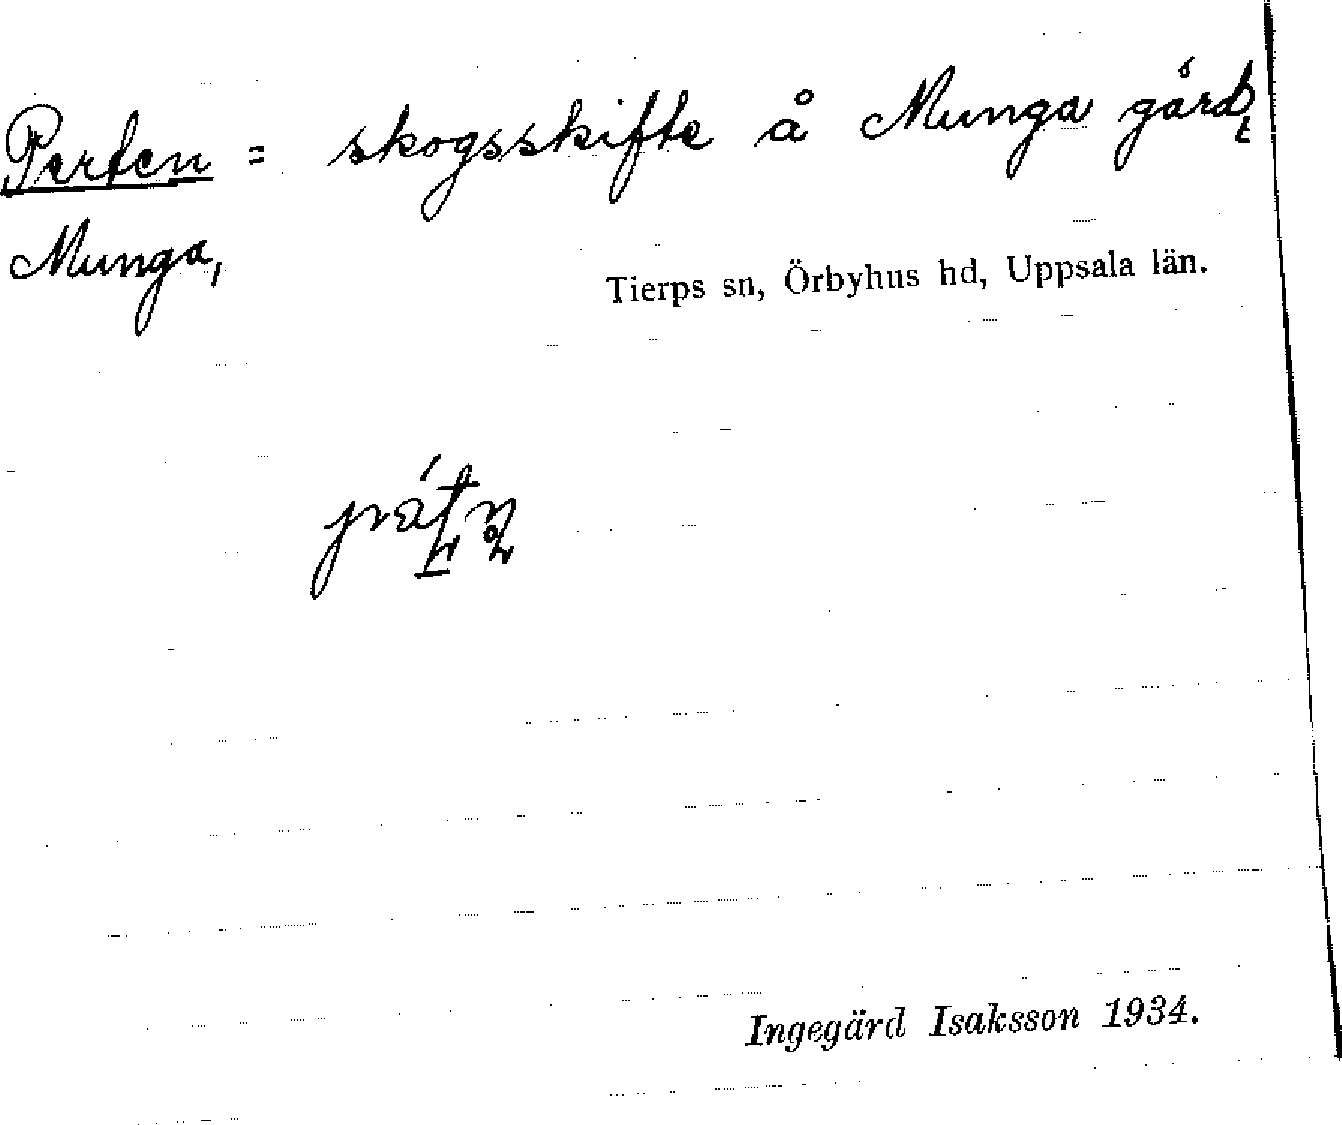 Perten = skogsskifte å Munga gård,
Munga,
Tierps sn, Örbyhus hd, Uppsala län.
Ingegärd Isaksson 1934.